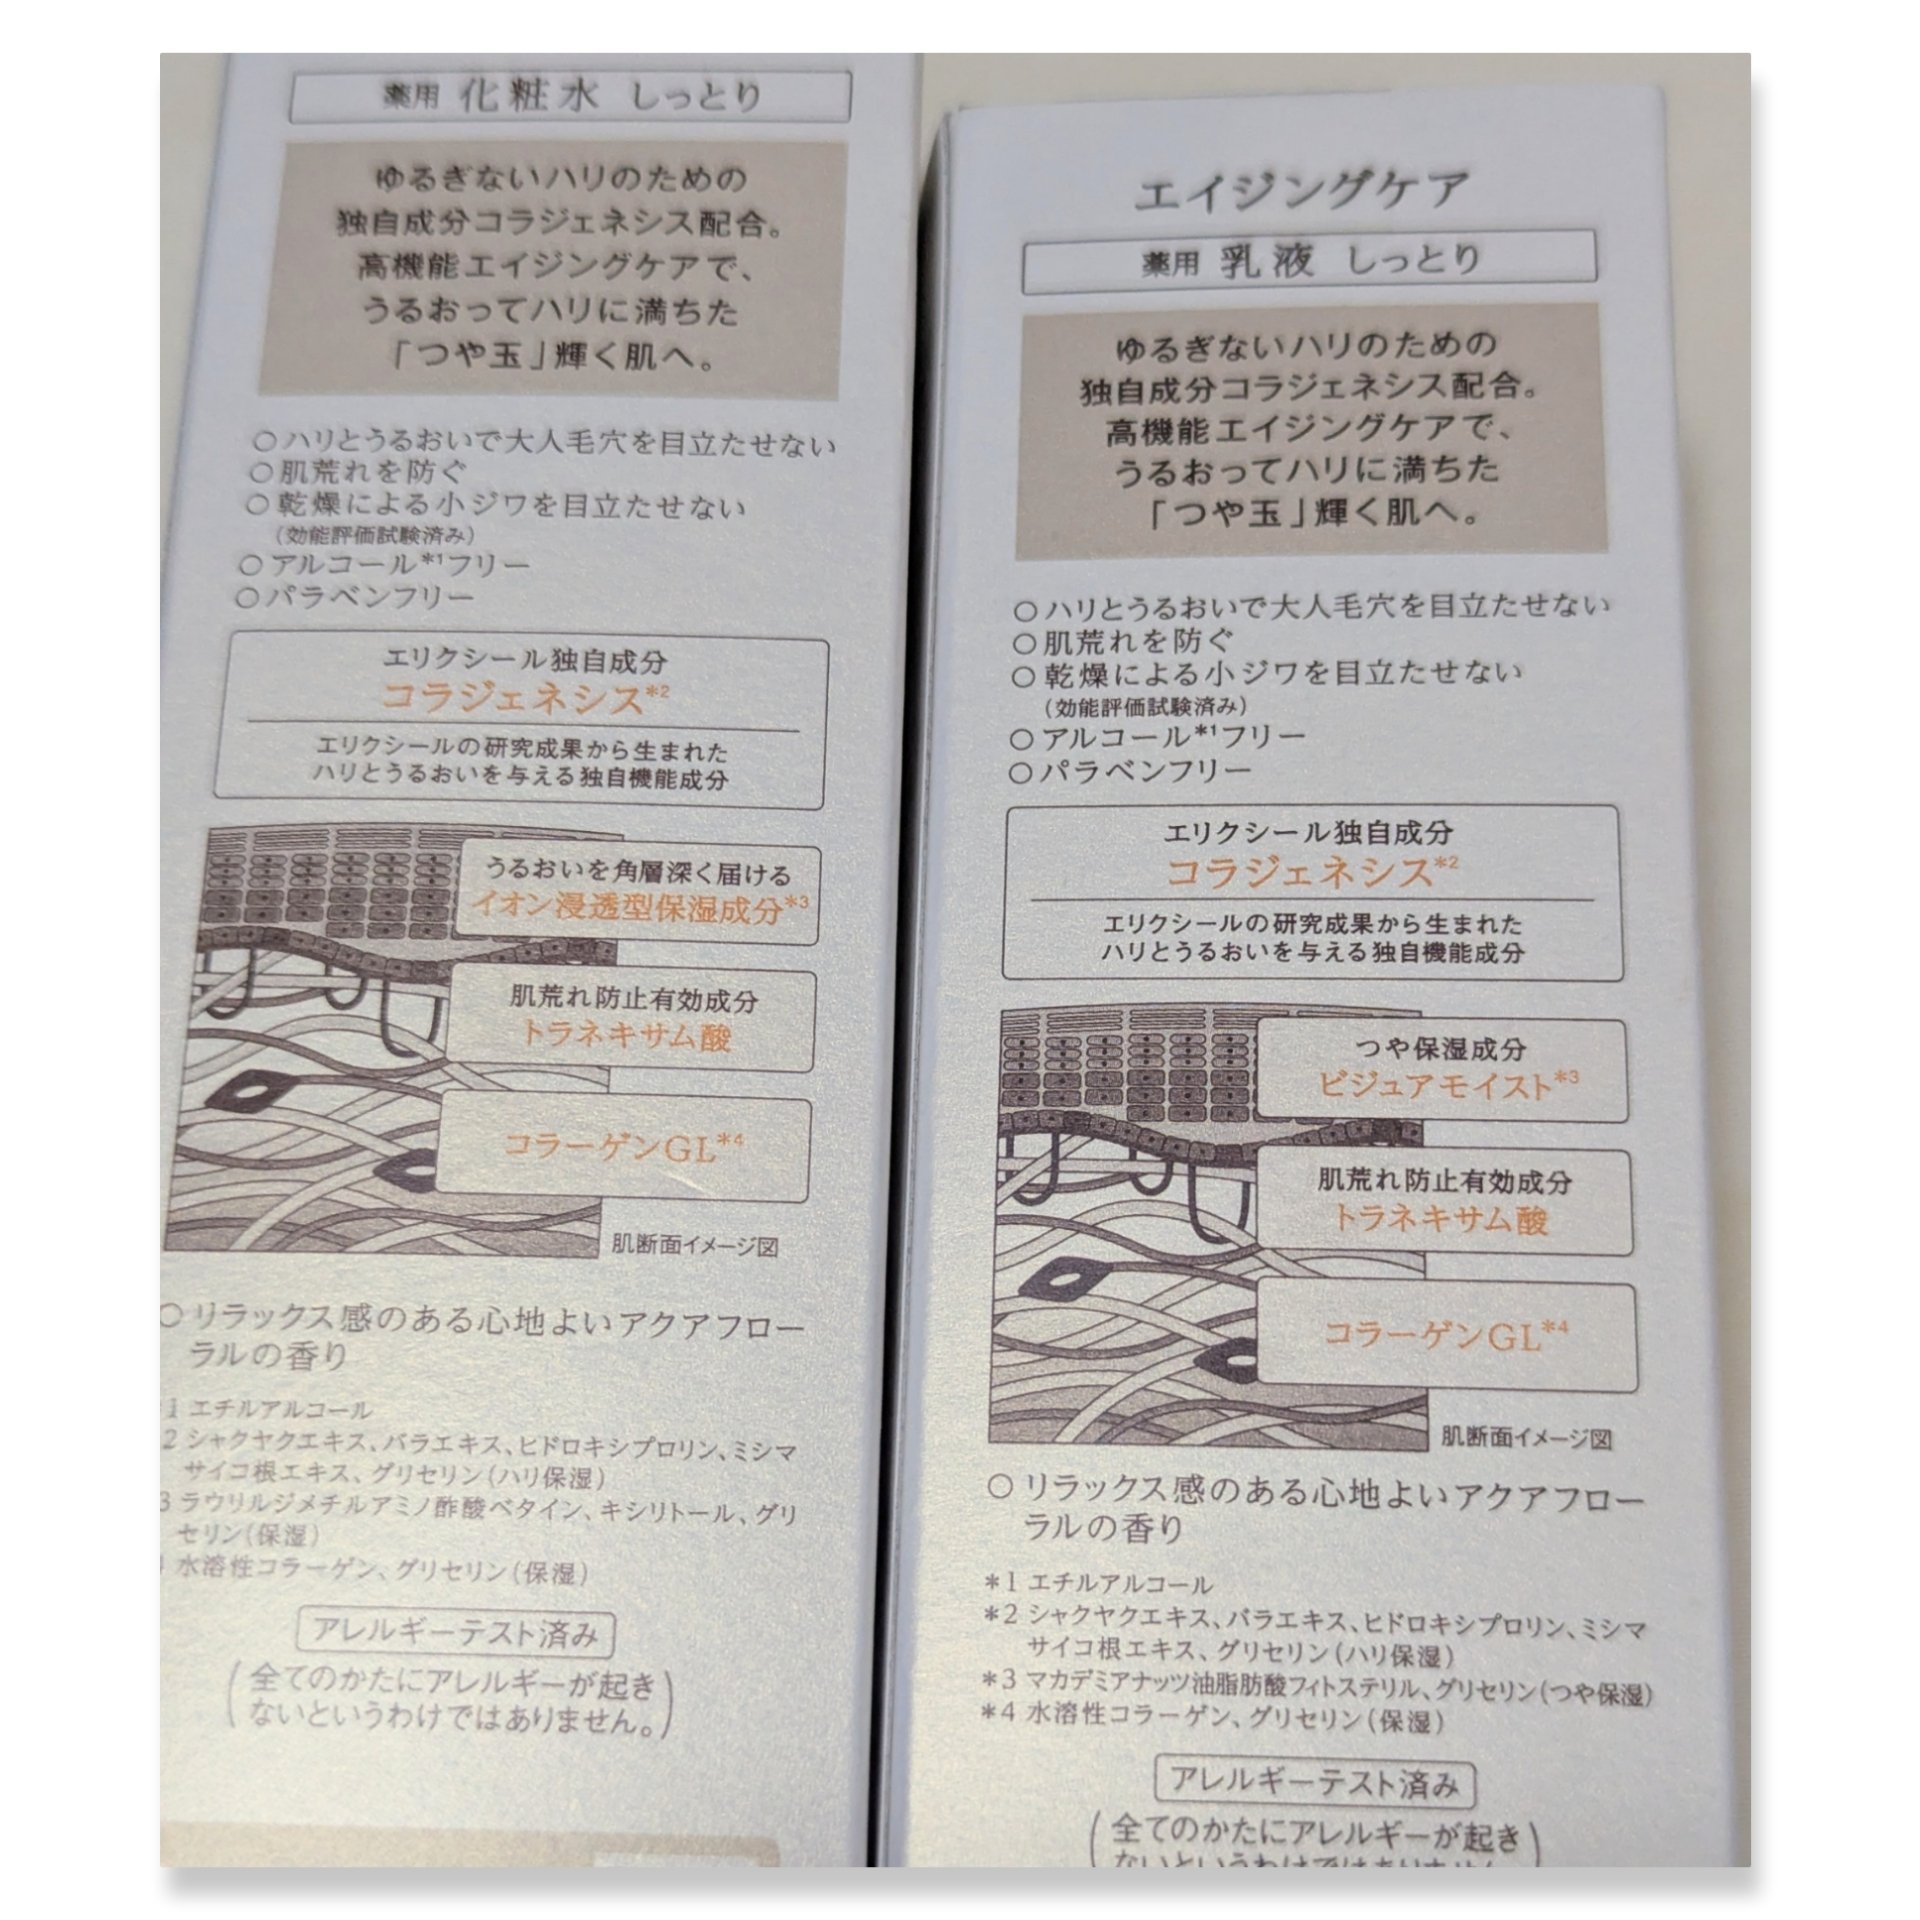 薬用 化粧水 しっとり
ゆるぎないハリのための
独自成分コラジェネシス配合。
高機能エイジングケアで、
うるおってハリに満ちた
「つや玉」輝く肌へ。
○ハリとうるおいで大人毛穴を目立たせない
○肌荒れを防ぐ
○乾燥による小ジワを目立たせない
(効能評価試験済み)
○アルコール*1フリー
○パラベンフリー
エリクシール独自成分
コラジェネシス*2
エリクシールの研究成果から生まれた
ハリとうるおいを与える独自機能成分
うるおいを角層深く届ける
イオン浸透型保湿成分*3
肌荒れ防止有効成分
トラネキサム酸
コラーゲンGL*4
肌断面イメージ図
○リラックス感のある心地よいアクアフロー
ラルの香り
1 エチルアルコール
2 シャクヤクエキス、バラエキス、ヒドロキシプロリン、ミシマ
サイコ根エキス、グリセリン(ハリ保湿)
3 ラウリルジメチルアミノ酢酸ベタイン、キシリトール、グリ
セリン(保湿)
水溶性コラーゲン、グリセリン(保湿)
アレルギーテスト済み
(全てのかたにアレルギーが起き
ないというわけではありません。)
エイジングケア
薬用 乳液 しっとり
ゆるぎないハリのための
独自成分コラジェネシス配合。
高機能エイジングケアで、
うるおってハリに満ちた
「つや玉」輝く肌へ。
○ハリとうるおいで大人毛穴を目立たせない
○肌荒れを防ぐ
○乾燥による小ジワを目立たせない
(効能評価試験済み)
○アルコール*1フリー
○パラベンフリー
エリクシール独自成分
コラジェネシス*2
エリクシールの研究成果から生まれた
ハリとうるおいを与える独自機能成分
つや保湿成分
ビジュアモイスト*3
肌荒れ防止有効成分
トラネキサム酸
コラーゲンGL*4
肌断面イメージ図
○リラックス感のある心地よいアクアフロー
ラルの香り
*1 エチルアルコール
*2 シャクヤクエキス、バラエキス、ヒドロキシプロリン、ミシマ
サイコ根エキス、グリセリン(ハリ保湿)
*3 マカデミアナッツ油脂肪酸フィトステリル、グリセリン(つや保湿)
*4 水溶性コラーゲン、グリセリン(保湿)
アレルギーテスト済み
(全てのかたにアレルギーが起き)